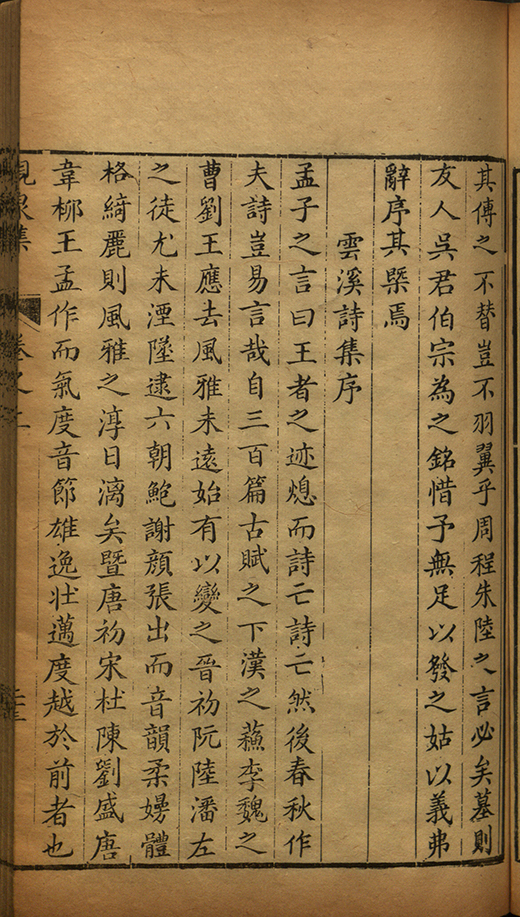 其傳之不替豈不羽翼乎周程朱陸之言必矣墓則
友人吳君伯宗為之銘惜予無足以發之姑以義弗
辭序其槩焉
雲溪詩集序
孟子之言曰王者之迹熄而詩亡詩亡然後春秋作
夫詩豈易言哉自三百篇古賦之下漢之蘇李魏之
曹劉王應去風雅未遠始有以變之晉初阮陸潘左
之徒尤未湮墜逮六朝鮑謝顔張出而音韻柔嫚體
格綺麗則風雅之淳日漓矣暨唐初宋杜陳劉盛唐
韋桺王孟作而氣度音節雄逸壯邁度越於前者也
峴泉集 卷之二